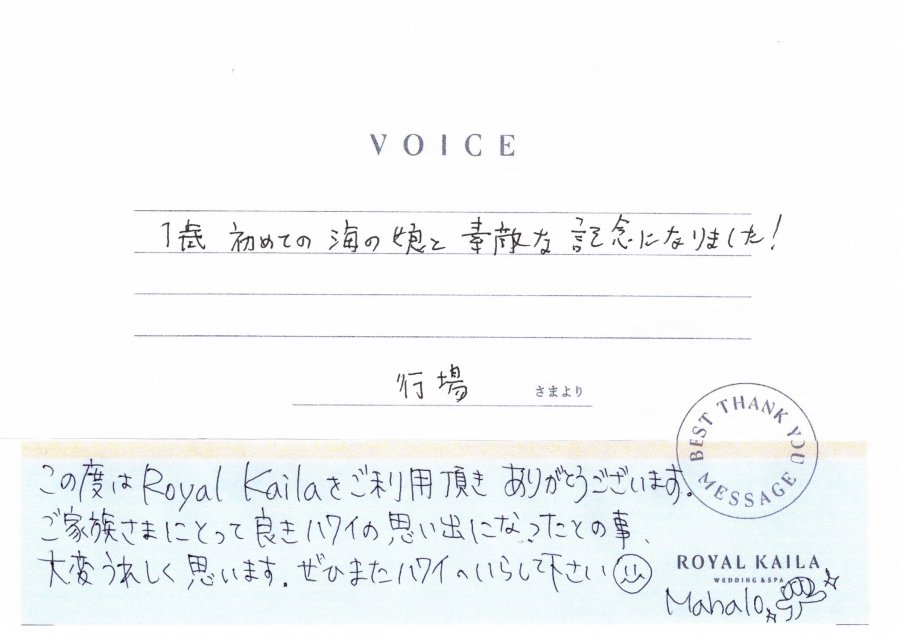 VOICE
1歳 初めての 海の娘と 素敵な 記念になりました!
行場 さまより
BEST THANK YOU MESSAGE
この度はRoyal Kailaをご利用頂き ありがとうございます.
ご家族さまにとって良きハワイの思い出になったとの事、
大変うれしく思います. ぜひまたハワイへいらして下さい
ROYAL KAILA
WEDDING & SPA
Mahalo